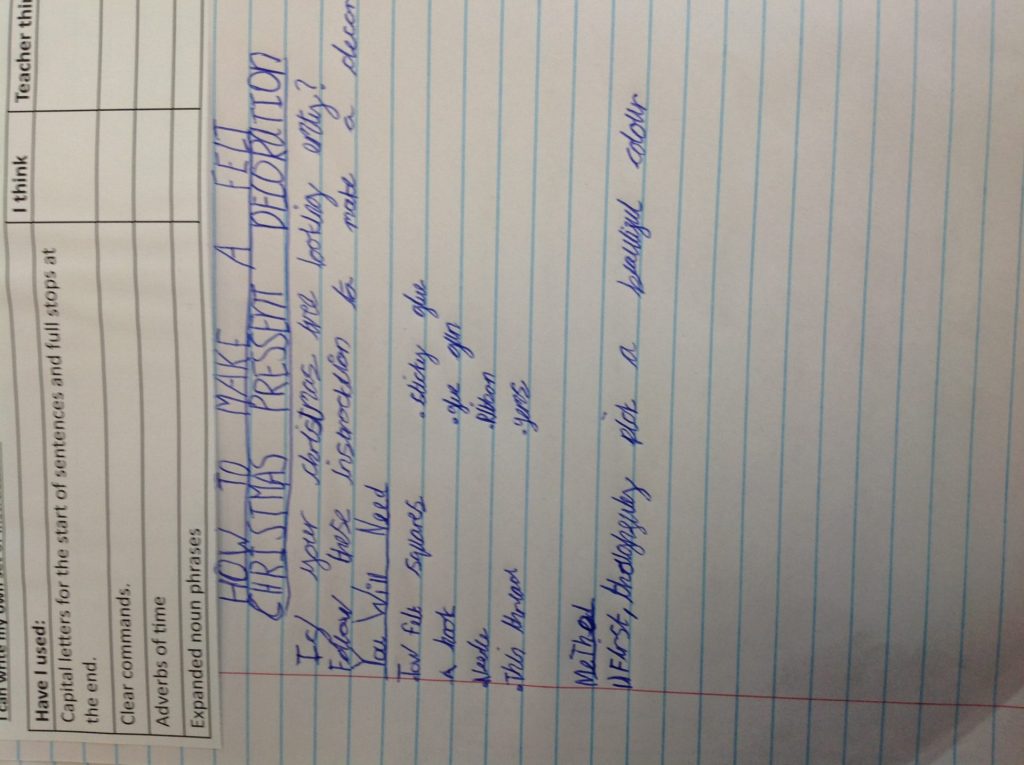 I can write my own set of
I think
Teacher thi
Have I used:
Capital letters for the start of sentences and full stops at
the end.
Clear commands.
Adverbs of time
Expanded noun phrases
HOW TO MAKE A FELT
CHRISTMAS PRESSENT DECORATION
Is your christmas tree looking emtiy?
Follow these instrocktion to make a decor
You Will Need
Tow filt squares • stichy glue
A hook • glue gun
Needle • Ribbon
• Thin thread • gems
Method
1) First, pick a beautiful colour